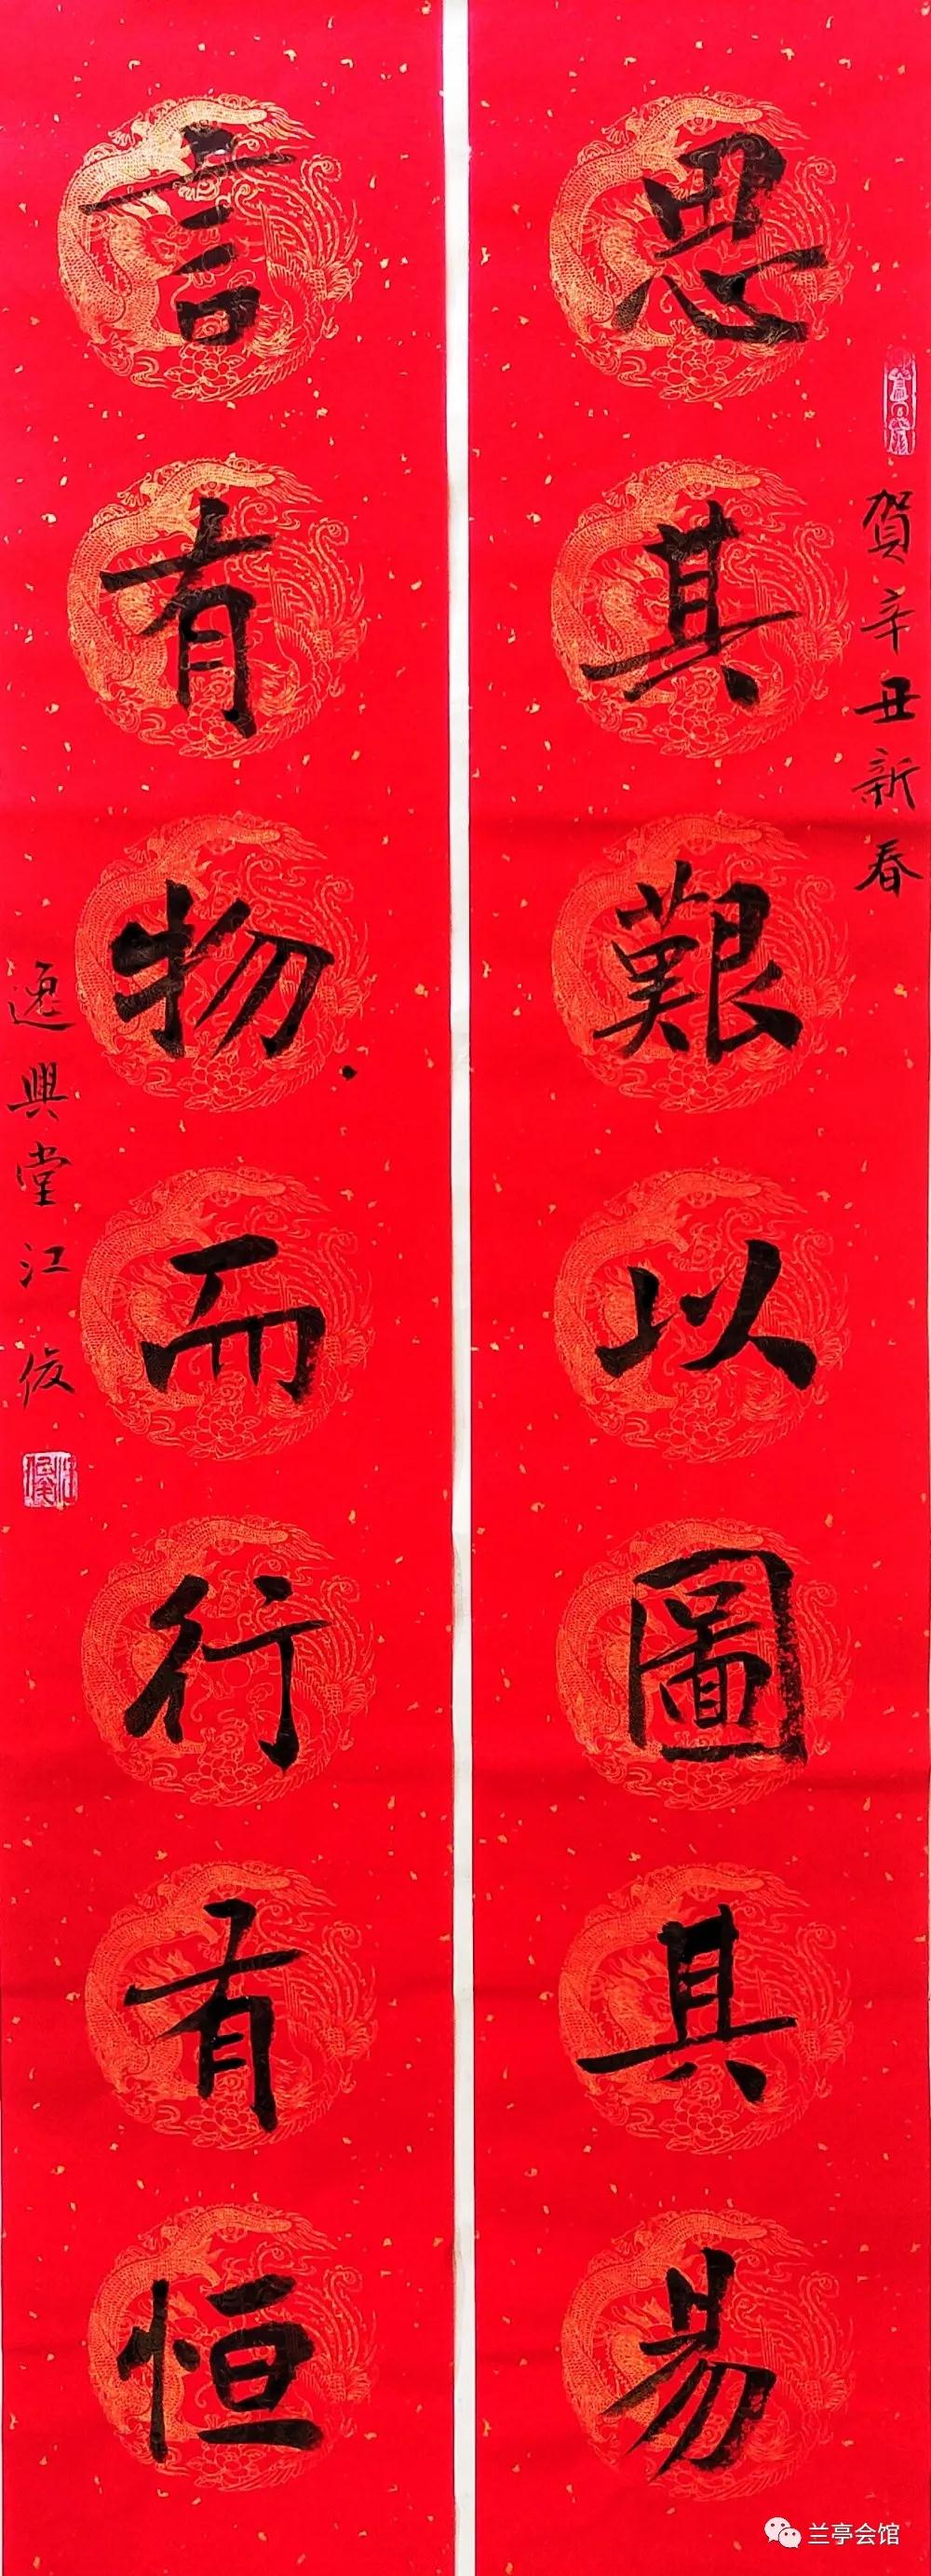 賀辛丑新春
思其艱以圖其易
言有物而行有恒
逸興堂江俊
兰亭会馆